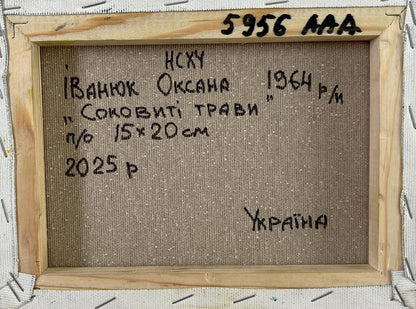 5956 ААА
НСХУ
Іванюк Оксана 1964 р/н
„Соковиті трави"
п/о 15×20 см
2025 р
Україна